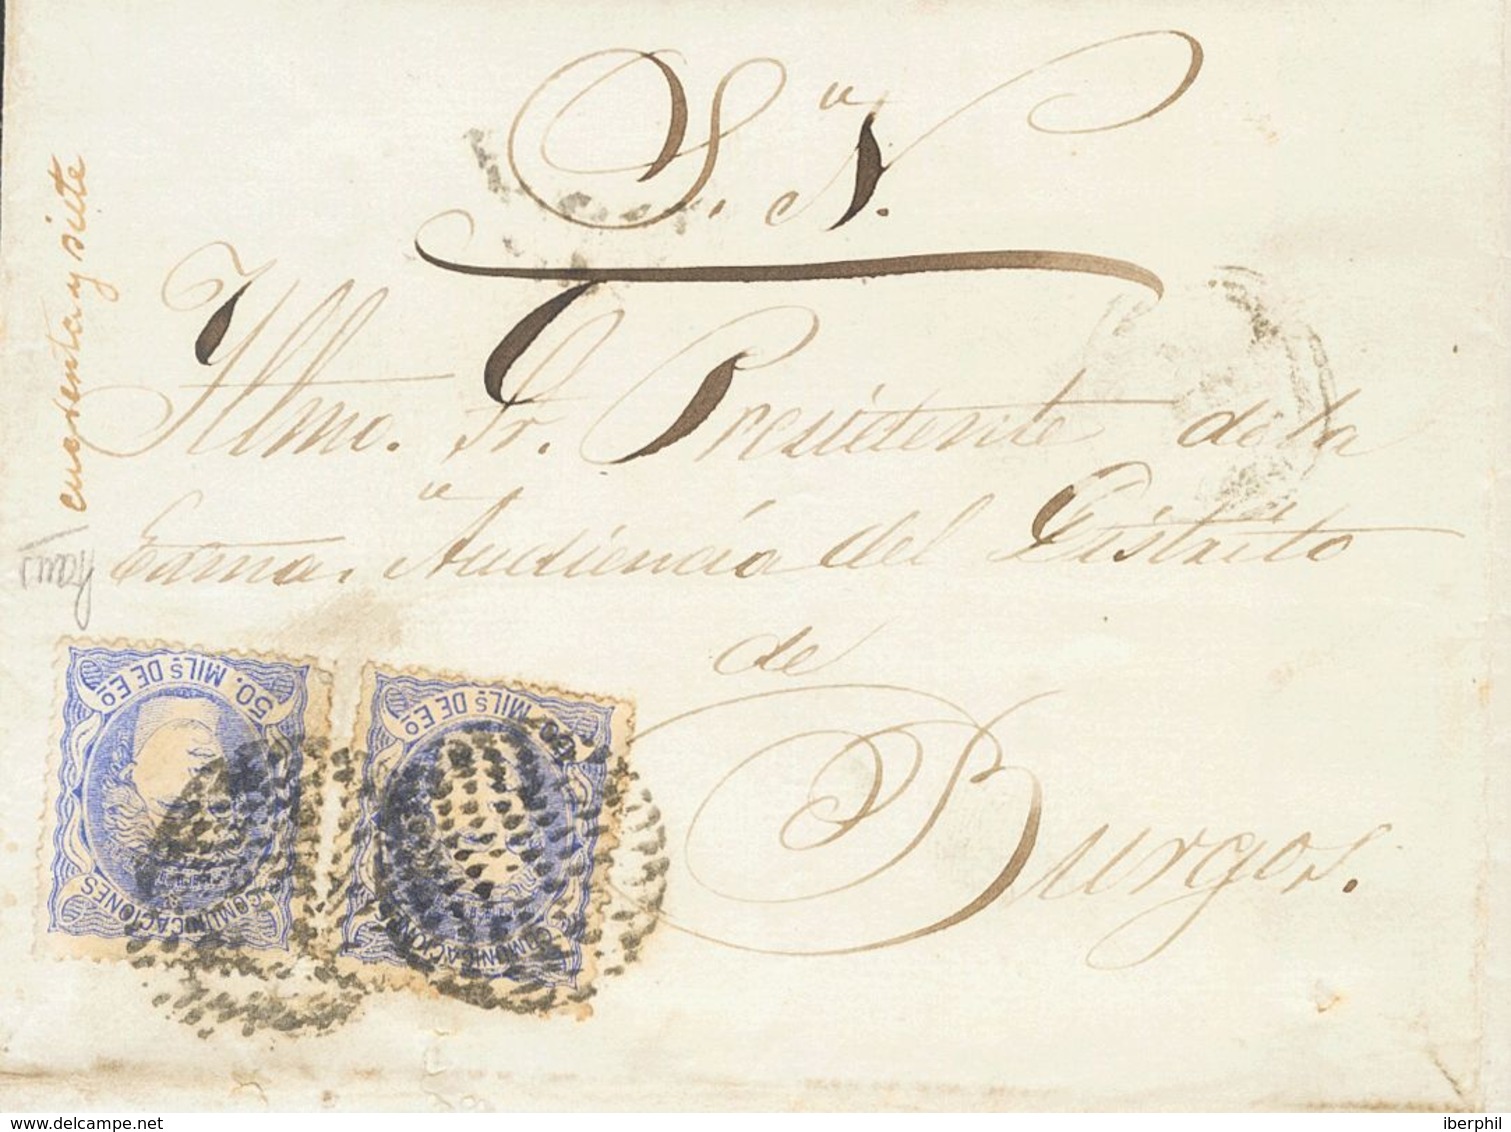 S. N.
Yllmo. Sr. Presidente de la
Exma. Audiencia del Distrito
de
Burgos.
cuarenta y siete
50. MILS DE Eo
COMUNICACIONES
50. MILS DE Eo
COMUNICACIONES
www.delcampe.net
iberphil